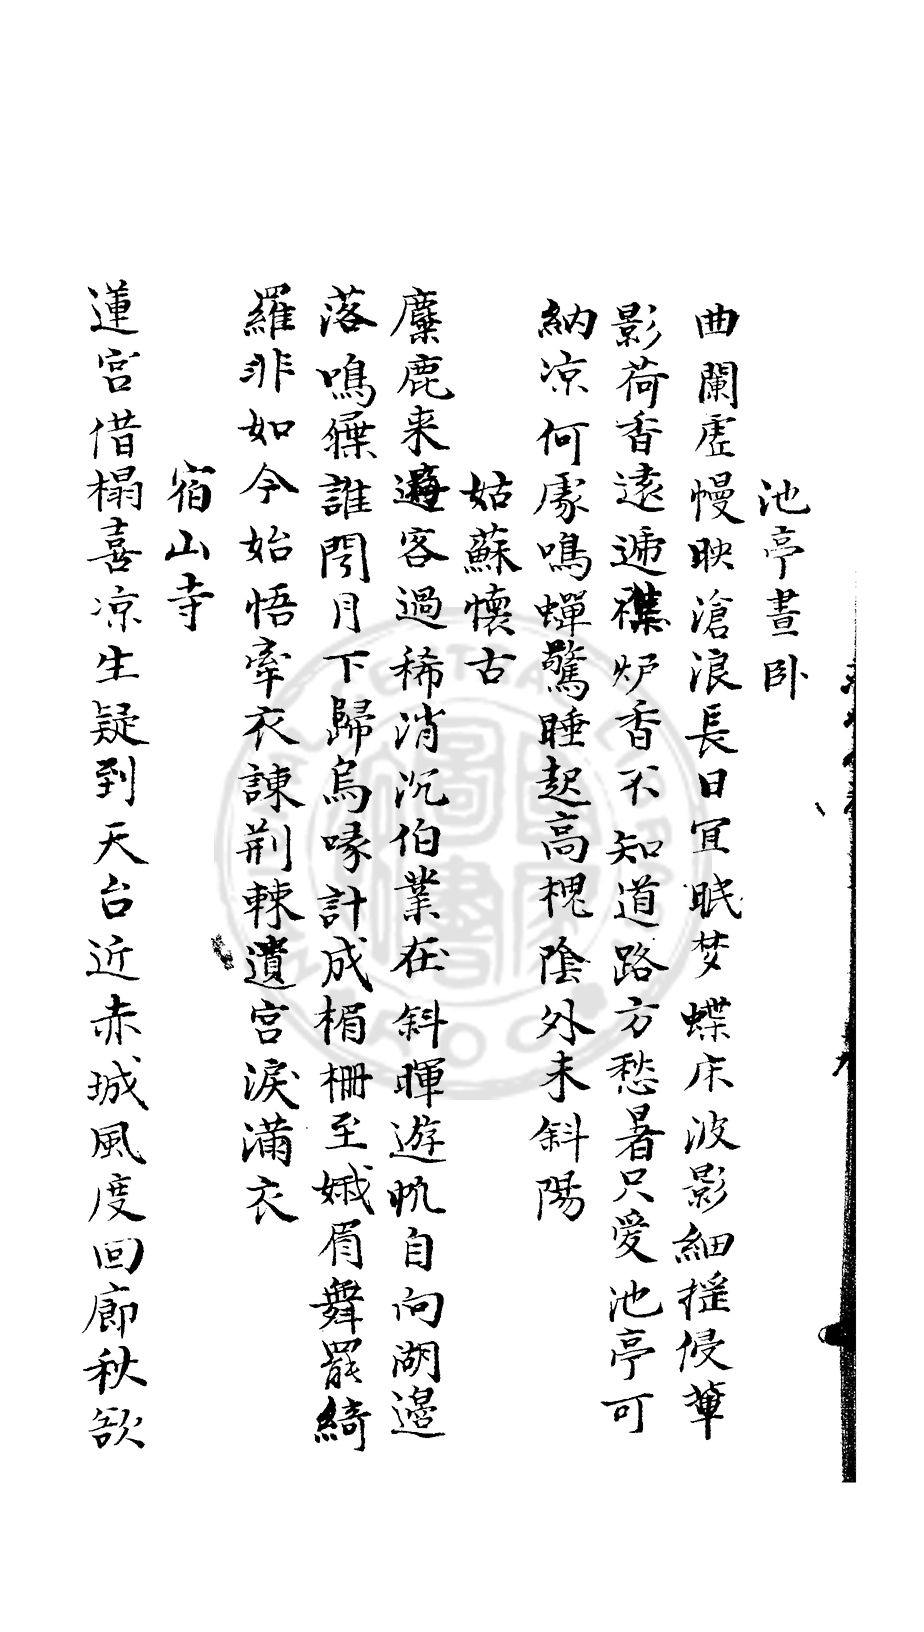 池亭晝卧
曲闌虛幔映滄浪長日宜眠梦蝶床波影細搖侵簟
影荷香遠遞襍炉香不知道路方愁暑只愛池亭可
納凉何處鳴蟬驚睡起高槐陰外未斜陽
姑蘇懷古
麋鹿来遊客過稀消沉伯業在斜暉遊帆自向湖邉
落鳴屧誰問月下歸烏喙計成楣栅至娥眉舞罷綺
羅非如今始悟牽衣諫荆棘遺宮淚滿衣
宿山寺
蓮宮借榻喜凉生疑到天台近赤城風度回廊秋欲